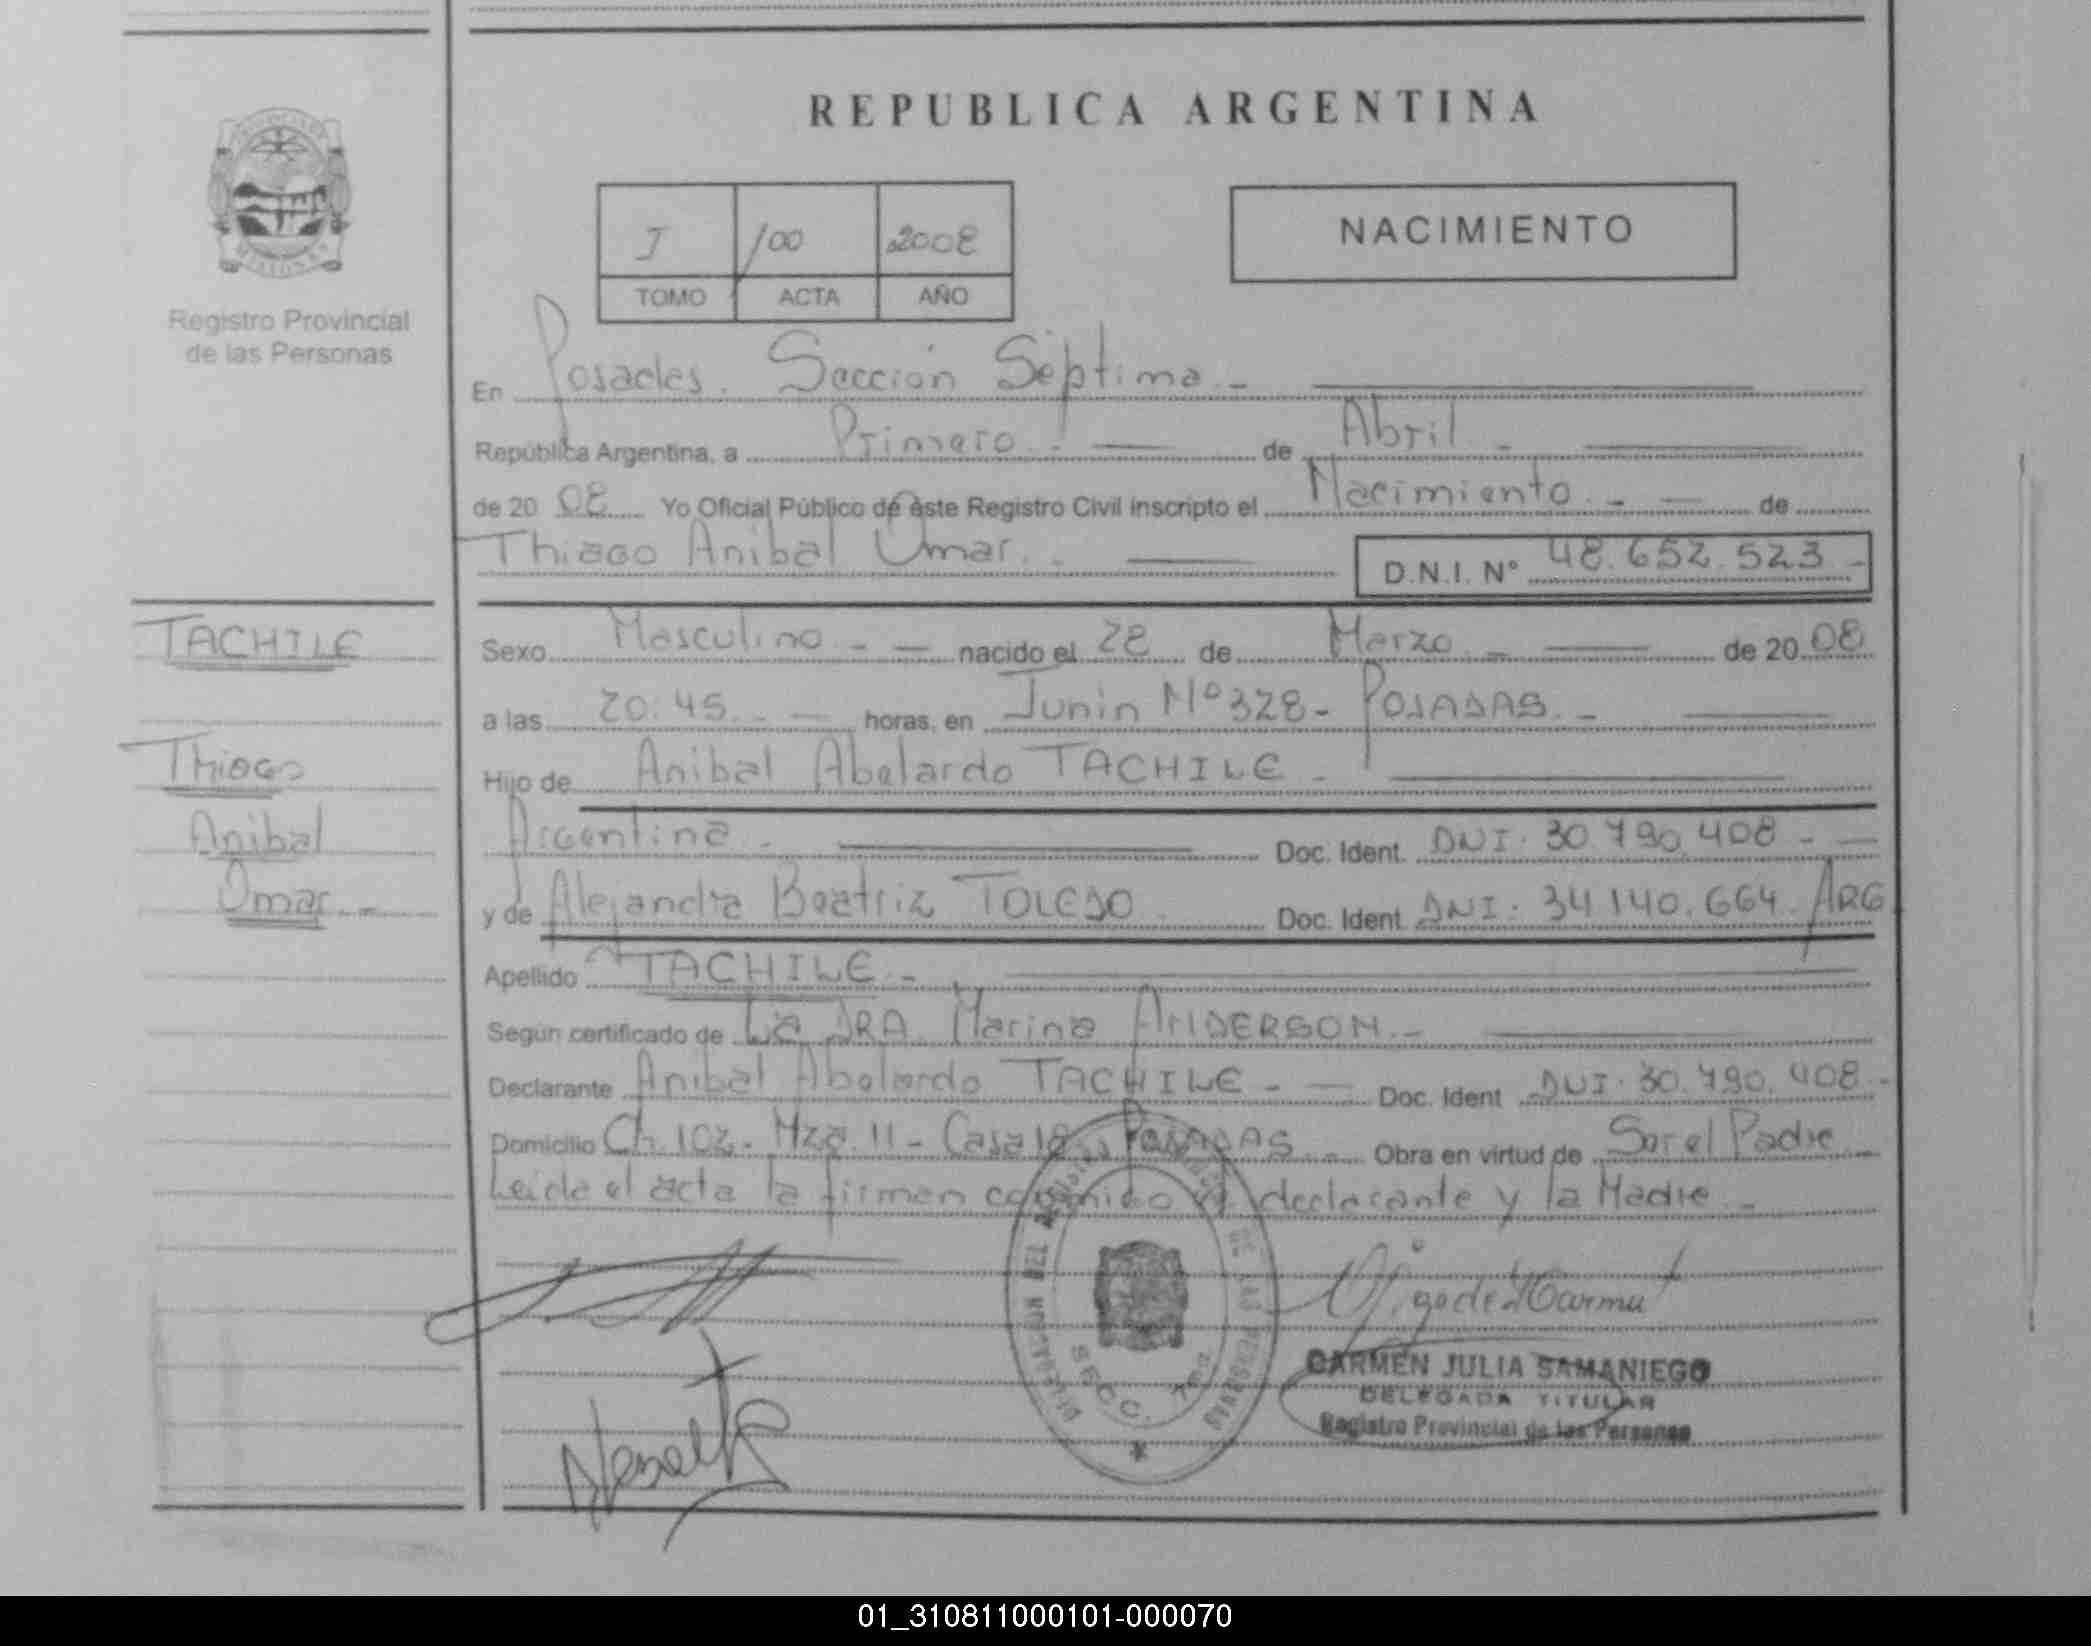 REPUBLICA ARGENTINA
MISIONES
Registro Provincial
de las Personas
I /00 2008
TOMO ACTA AÑO
NACIMIENTO
En Posadas. Sección Séptima.-
República Argentina, a Primero.- de Abril.-
de 20 08 Yo Oficial Público de este Registro Civil inscripto el Nacimiento.- de
Thiago Anibal Omar.- D.N.I. N° 48.652.523.-
TACHILE
Thiago
Anibal
Omar.-
Sexo Masculino.- nacido el 28 de Marzo.- de 20 08
a las 20:45.- horas, en Junin Nº 328- POSADAS.-
Hijo de Anibal Abelardo TACHILE.-
Argentina.- Doc. Ident. DNI: 30.790.408.-
y de Alejandra Beatriz TOLEDO Doc. Ident. DNI: 34.140.664. ARG
Apellido TACHILE.-
Según certificado de La DRA. Marina ANDERSON.-
Declarante Anibal Abelardo TACHILE.- Doc. Ident DNI: 30.790.408.-
Domicilio Ch. 102- Mza. 11- Casa 18, POSADAS.- Obra en virtud de Ser el Padre
Leida el acta la firman conmigo el declarante y la Madre.-
DE LAS PERSONAS
SECC. 7ma
CARMEN JULIA SAMANIEGO
DELEGADA TITULAR
Registro Provincial de las Personas
01_310811000101-000070